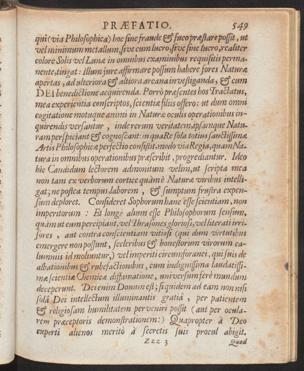 PRÆFATIO. 549
qui (via Philosophica) hoc sine fraude & fuco præstare possit, ut
vel minimum metallum, sive cum lucro, sive sine lucro, realiter
colore Solis vel Lunæ in omnibus examinibus requisitis perma-
nente tingat: illum jure affirmare possum habere fores Naturæ
apertas, ad ulteriora & altiora arcana investiganda, & cum
DEI benedictione acquirenda. Porrò præsentes hos Tractatus,
mea experientia conscriptos, scientiæ filiis offero: ut dum omni
cogitatione motuque animi in Naturæ oculis operationibus in-
quirendis versantur, inde rerum veritatem, ipsamque Natu-
ram perspiciant & cognoscant: in qua re sola totius sanctissimæ
Artis Philosophicæ perfectio consistit, modo via Regia, quam Na-
tura in omnibus operationibus præscribit, progrediantur. Ideo
hic Candidum lectorem admonitum velim, ut scripta mea
non tam ex verborum cortice quàm è Naturæ viribus intelli-
gat; ne postea tempus, laborem, & sumptum frustra expen-
sum deploret. Consideret Sophorum hanc esse scientiam, non
imperitorum: Et longè alium esse Philosophorum sensum,
quàm ut eum percipiant, vel Thrasones gloriosi, vel literati irri-
sores, aut contra conscientiam vitiosi (qui dum virtutibus
emergere non possunt, sceleribus & honestorum virorum ca-
lumniis id moliuntur,) vel imperiti circumforanei, qui suis de-
albationibus & rubefactionibus, cum indignissima laudatissi-
mæ scientiæ Chemicæ diffamatione, universum ferè mundum
deceperunt. Dei enim Donum est; siquidem ad eam non nisi
solâ Dei intellectum illuminantis gratiâ, per patientem
& religiosam humilitatem perveniri possit (aut per ocula-
rem præceptoris demonstrationem:) Quapropter à Deo
experti alienos meritò à secretis suis procul abigit.
Zzz 3 Quod